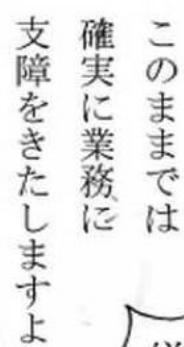 このままでは
確実に業務に
支障をきたしますよ